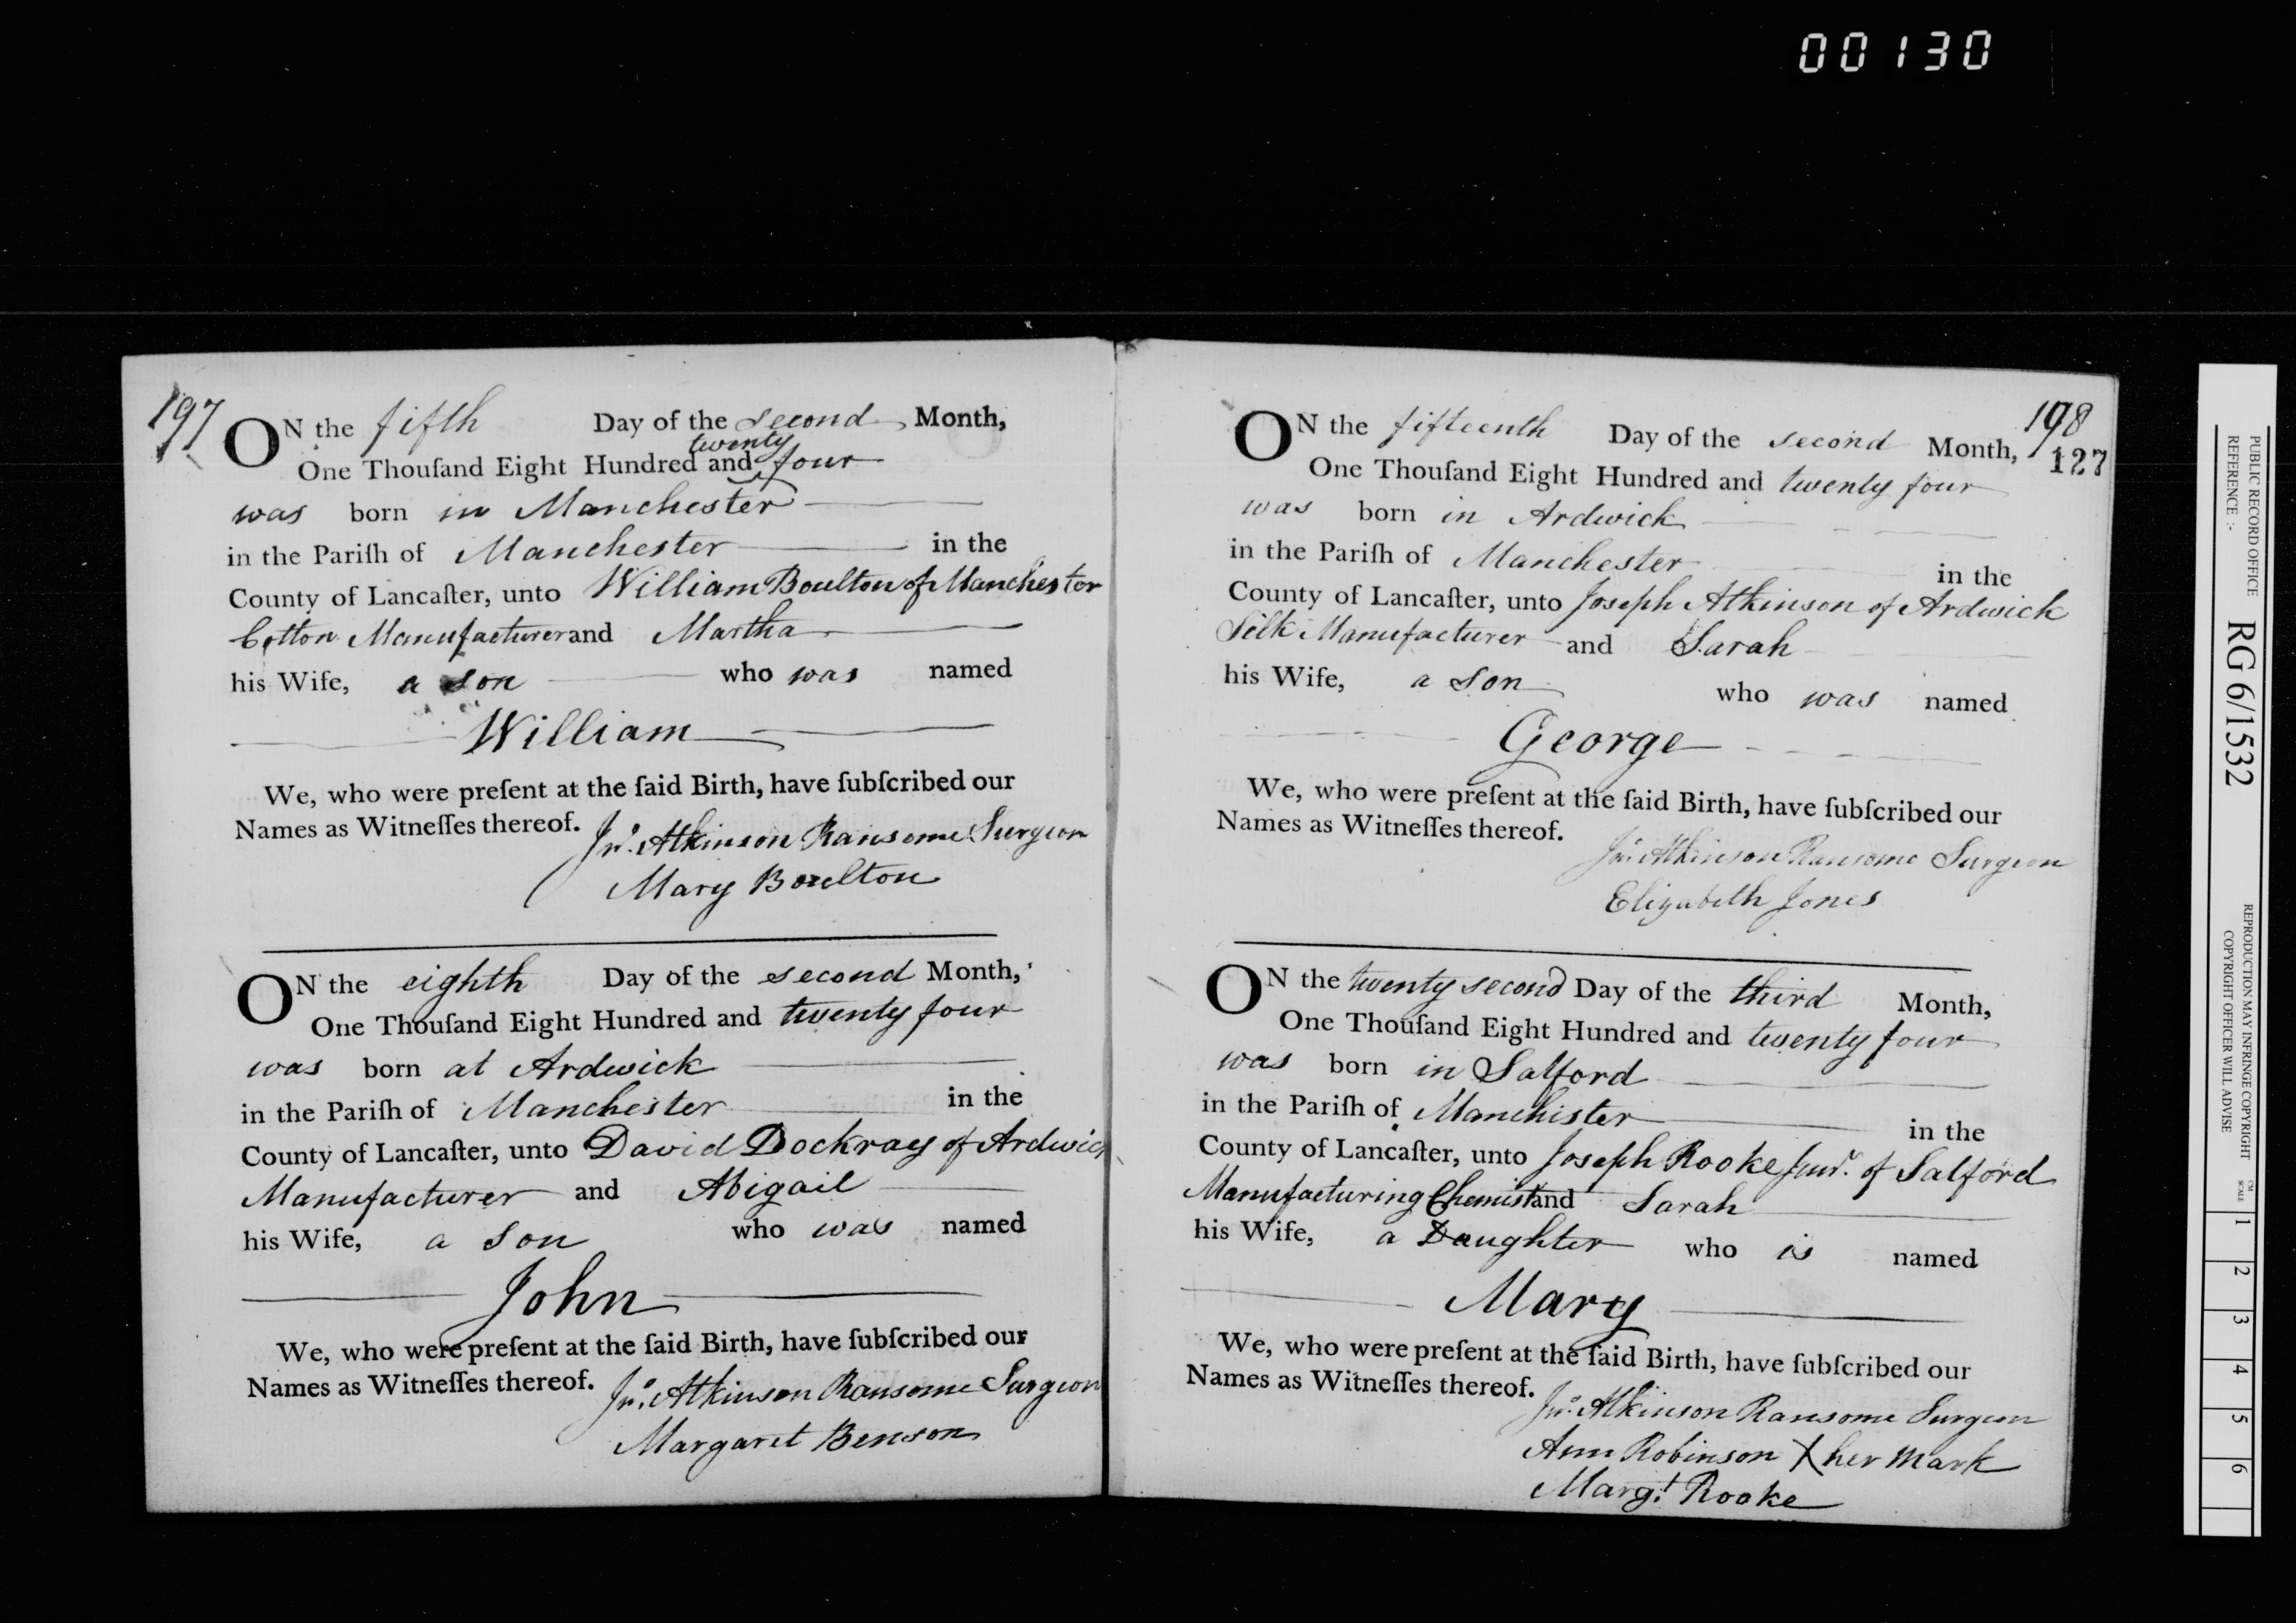 00130
197
ON the fifth Day of the second Month,
twenty
One Thouſand Eight Hundred and four
was born in Manchester
in the Pariſh of Manchester in the
County of Lancaſter, unto William Boulton of Manchester
Cotton Manufacturer and Martha
his Wife, a son who was named
William
We, who were preſent at the ſaid Birth, have ſubſcribed our
Names as Witneſſes thereof.
Jno. Atkinson Ransome Surgeon
Mary Boulton
ON the eighth Day of the second Month,
One Thouſand Eight Hundred and twenty four
was born at Ardwick
in the Pariſh of Manchester in the
County of Lancaſter, unto David Dockray of Ardwick
Manufacturer and Abigail
his Wife, a son who was named
John
We, who were preſent at the ſaid Birth, have ſubſcribed our
Names as Witneſſes thereof.
Jno. Atkinson Ransome Surgeon
Margaret Benson
198
127
ON the fifteenth Day of the second Month,
One Thouſand Eight Hundred and twenty four
was born in Ardwick
in the Pariſh of Manchester in the
County of Lancaſter, unto Joseph Atkinson of Ardwick
Silk Manufacturer and Sarah
his Wife, a son who was named
George
We, who were preſent at the ſaid Birth, have ſubſcribed our
Names as Witneſſes thereof.
Jno. Atkinson Ransome Surgeon
Elizabeth Jones
ON the twenty second Day of the third Month,
One Thouſand Eight Hundred and twenty four
was born in Salford
in the Pariſh of Manchister in the
County of Lancaſter, unto Joseph Rooke Junr. of Salford
Manufacturing Chemist and Sarah
his Wife, a Daughter who is named
Mary
We, who were preſent at the ſaid Birth, have ſubſcribed our
Names as Witneſſes thereof.
Jno. Atkinson Ransome Surgeon
Ann Robinson X her Mark
Margt. Rooke
PUBLIC RECORD OFFICE
REFERENCE :-
RG 6/1532
REPRODUCTION MAY INFRINGE COPYRIGHT
COPYRIGHT OFFICER WILL ADVISE
CM
SCALE
1
2
3
4
5
6